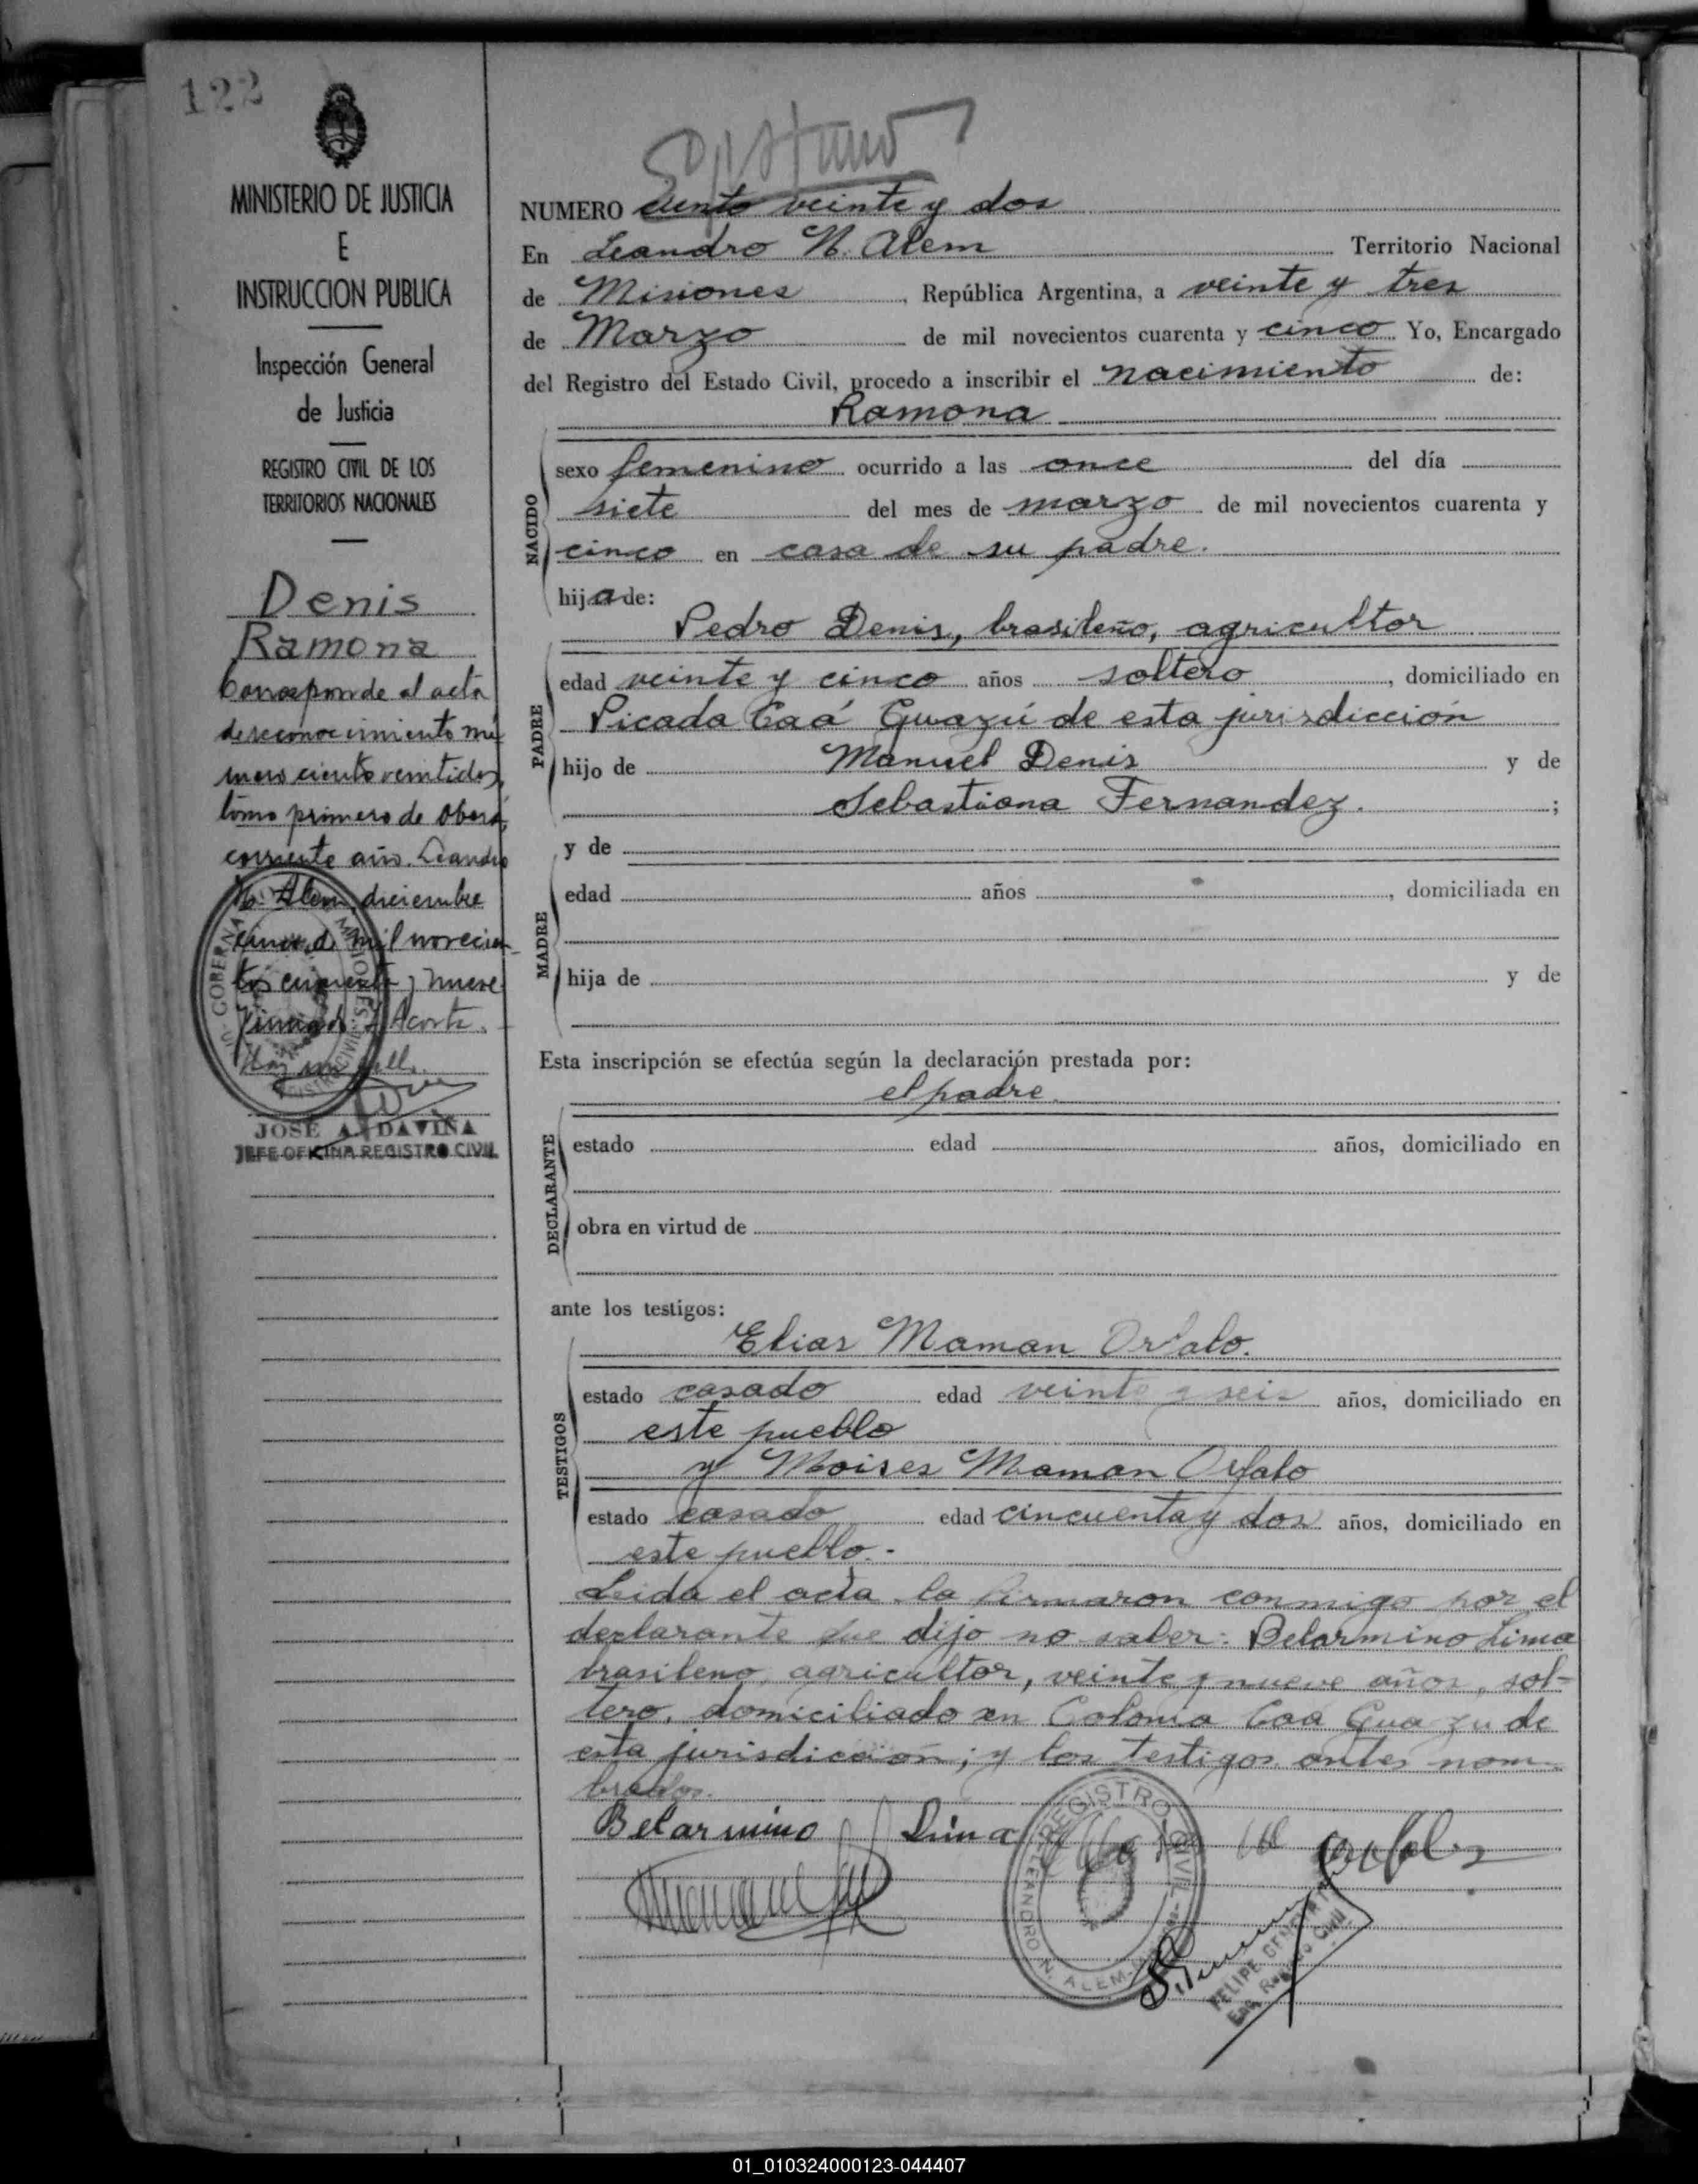 122
MINISTERIO DE JUSTICIA
E
INSTRUCCION PUBLICA
Inspección General
de Justicia
REGISTRO CIVIL DE LOS
TERRITORIOS NACIONALES
Denis
Ramona
Corresponde al acta
de reconocimiento nú
mero ciento veintidos,
tomo primero de Oberá,
corriente año. Leandro
N. Alem, diciembre
de mil novecien-
tos y nueve
Acosta.
JOSE A. DAVIÑA
JEFE OFICINA REGISTRO CIVIL
NUMERO ciento veinte y dos
En Leandro N. Alem Territorio Nacional
de Misiones, República Argentina, a veinte y tres
de Marzo de mil novecientos cuarenta y cinco Yo, Encargado
del Registro del Estado Civil, procedo a inscribir el nacimiento de:
Ramona
NACIDO
sexo femenino ocurrido a las once del día
siete del mes de marzo de mil novecientos cuarenta y
cinco en casa de su padre.
hija de:
Pedro Denis, brasileño, agricultor
PADRE
edad veinte y cinco años soltero, domiciliado en
Picada Caá Guazú de esta jurisdicción
hijo de Manuel Denis y de
Sebastiana Fernandez. ;
y de
MADRE
edad años, domiciliada en
hija de y de
Esta inscripción se efectúa según la declaración prestada por:
el padre.
DECLARANTE
estado edad años, domiciliado en
obra en virtud de
ante los testigos:
Elias Maman Orfalo.
TESTIGOS
estado casado edad veinte y seis años, domiciliado en
este pueblo
y Moises Maman Orfalo
estado casado edad cincuenta y dos años, domiciliado en
este pueblo.-
Leida el acta la firmaron conmigo por el
declarante que dijo no saber: Belarmino Lima
brasileno, agricultor, veinte y nueve años, sol-
tero, domiciliado en Colonia Caa Guazu de
esta jurisdiccion; y los testigos antes nom-
brados.
Belarmino Lima
REGISTRO CIVIL
LEANDRO N. ALEM
FELIPE
01_010324000123-044407